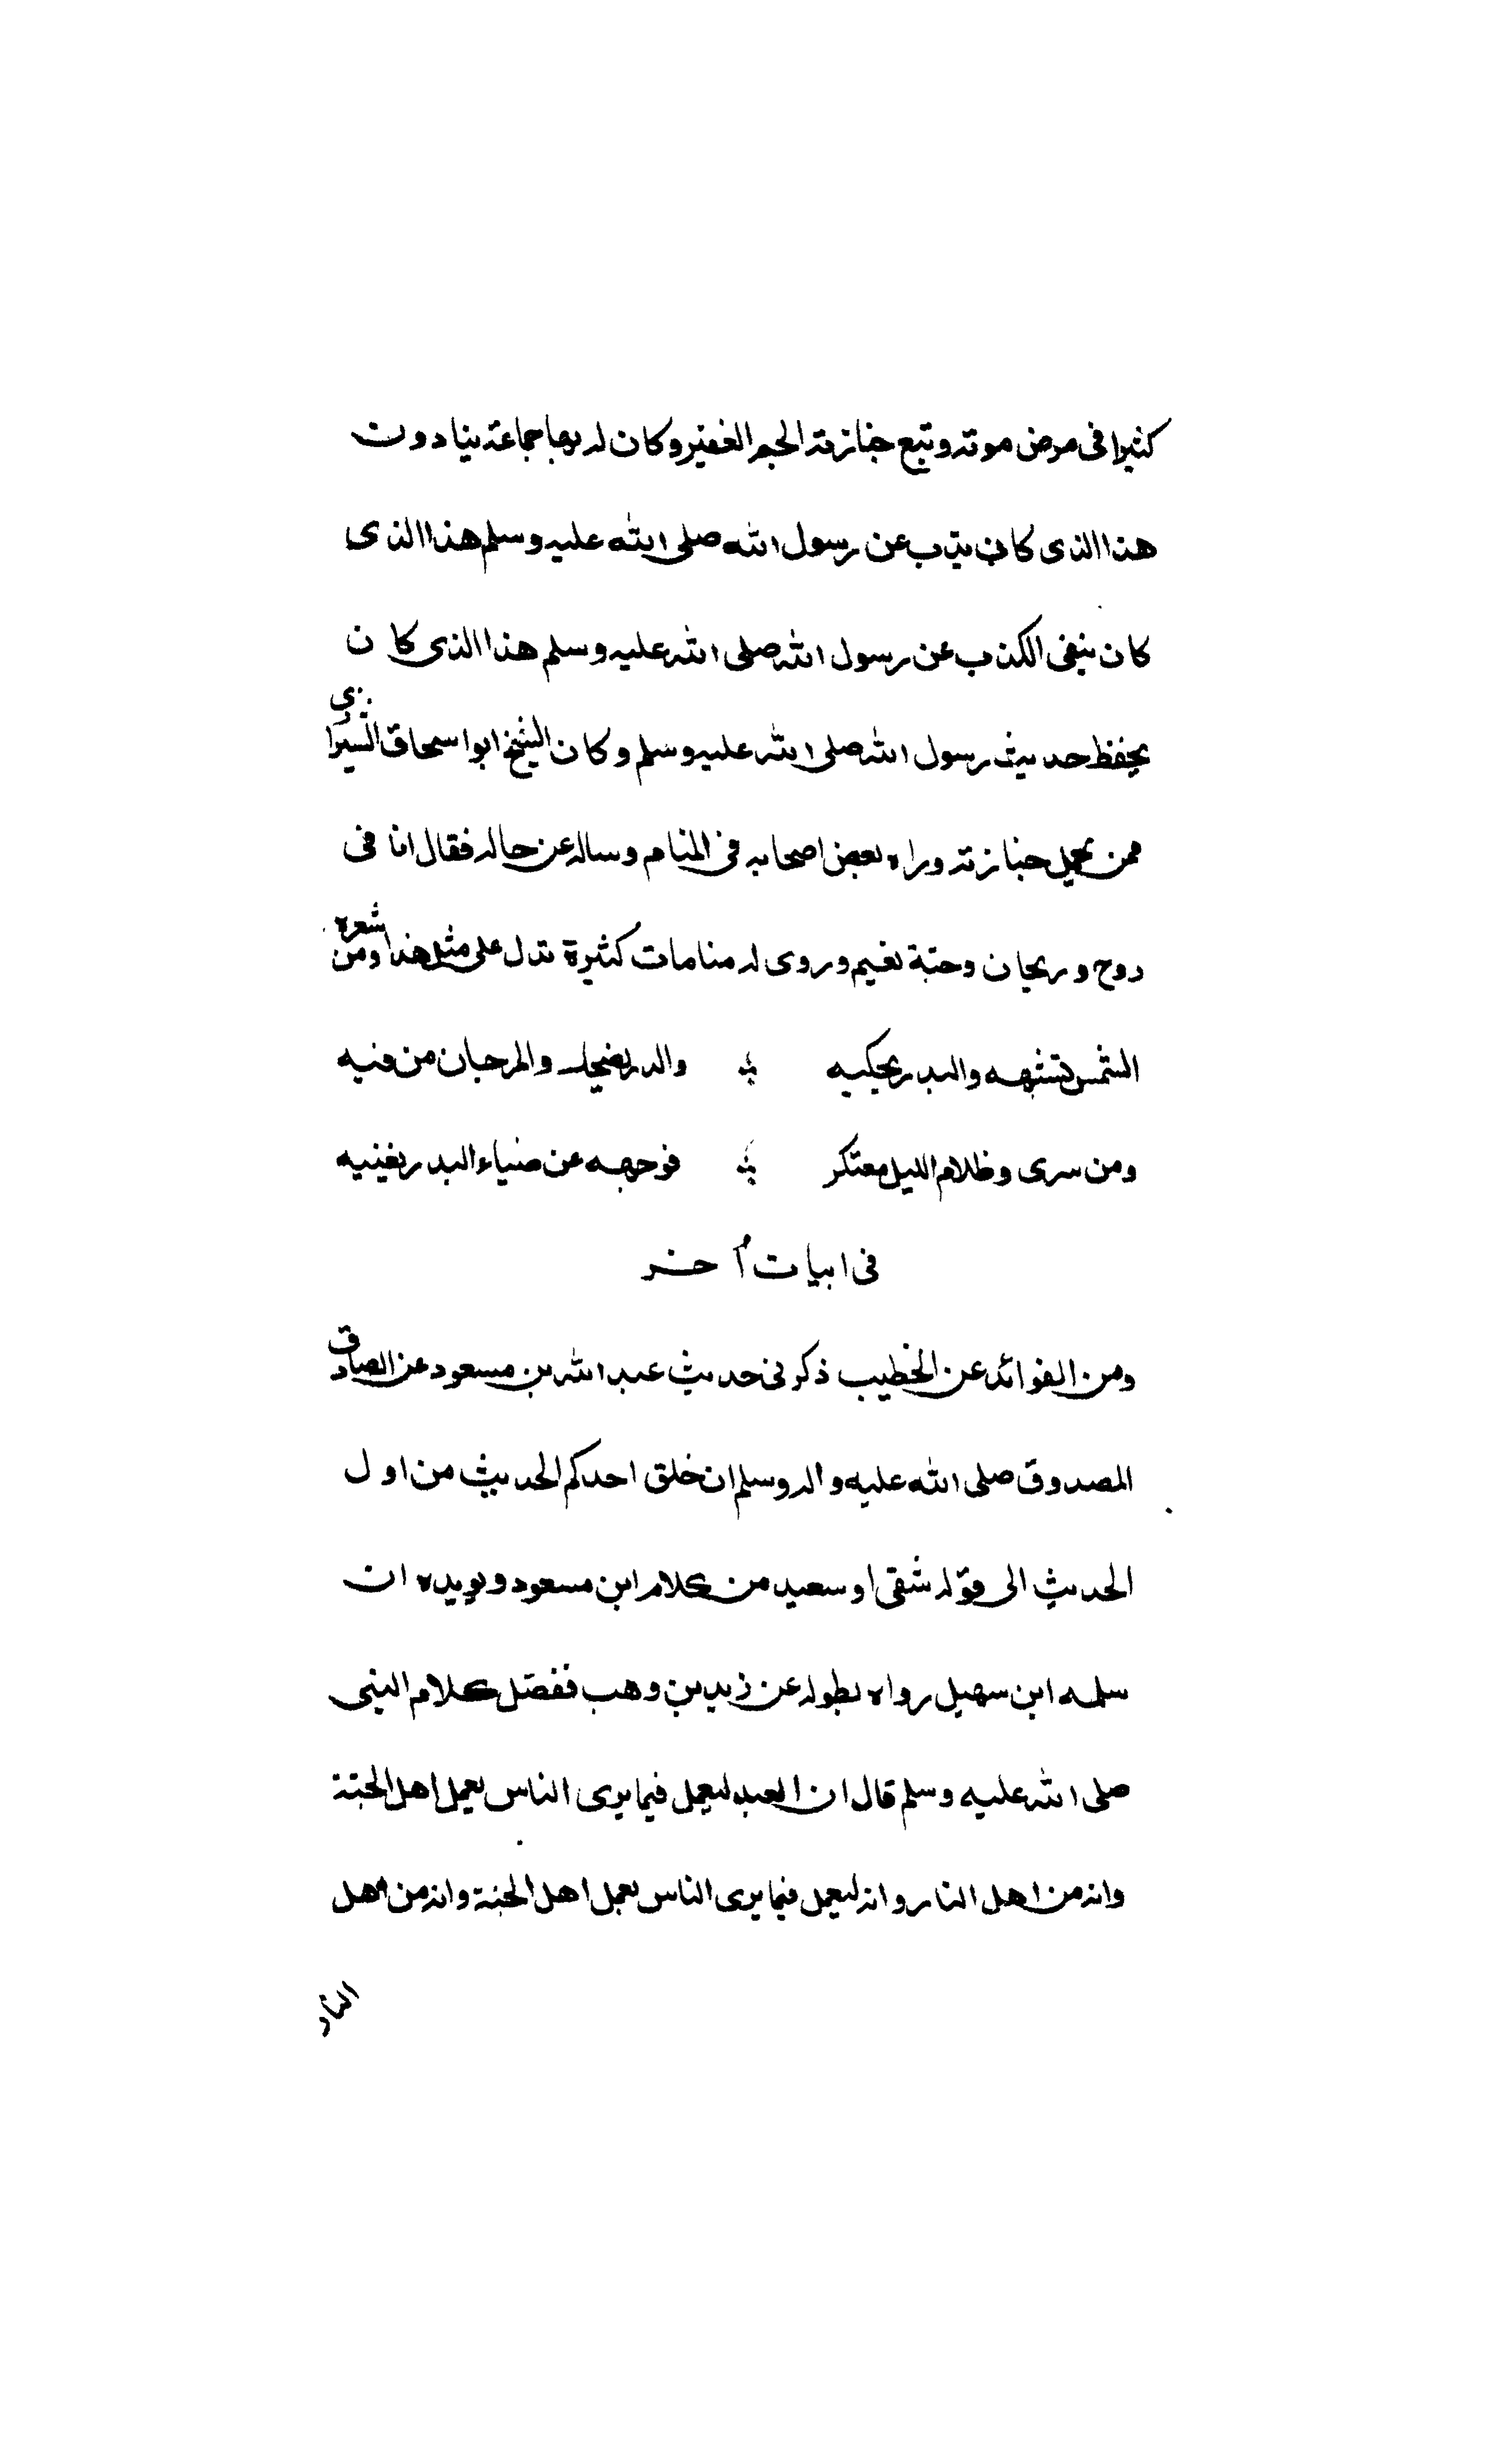 كثيرا فى مرض موته وتبع جنازته الجم الغفير وكان له بها جماعة ينادون
هذا الذى كان يذب عن رسول الله صلى الله عليه وسلم هذا الذى
كان ينفى الكذب عن رسول الله صلى الله عليه وسلم هذا الذى كان
يحفظ حديث رسول الله صلى الله عليه وسلم وكان الشيخ ابو اسحاق الشيرازي
ممن يحمل جنازته وراه بعض اصحابه فى المنام وساله عن حاله فقال انا فى
روح وريحان وجنة نعيم وروى له منامات كثيرة تدل على مثل هذا ومن شعره
الشمس تشبهه والبدر يحكيه والدر يضحك والمرجان من فيه
ومن سرى وظلام الليل معتكر فوجهه عن ضياء البدر يغنيه
فى ابيات أخر
ومن الفوائد عن الخطيب ذكر فى حديث عبد الله بن مسعود عن الصادق
المصدوق صلى الله عليه واله وسلم ان خلق احدكم الحديث من اول
الحديث الى قوله شقى او سعيد من كلام ابن مسعود ويويده ان
سلمه ابن سهيل رواه بطوله عن زيد بن وهب ففصّل كلام النبى
صلى الله عليه وسلم قال ان العبد ليعمل فيما يرى الناس بعمل اهل الجنة
وانه من اهل النار وانه ليعمل فيما يرى الناس بعمل اهل الجنة وانه من اهل
النار